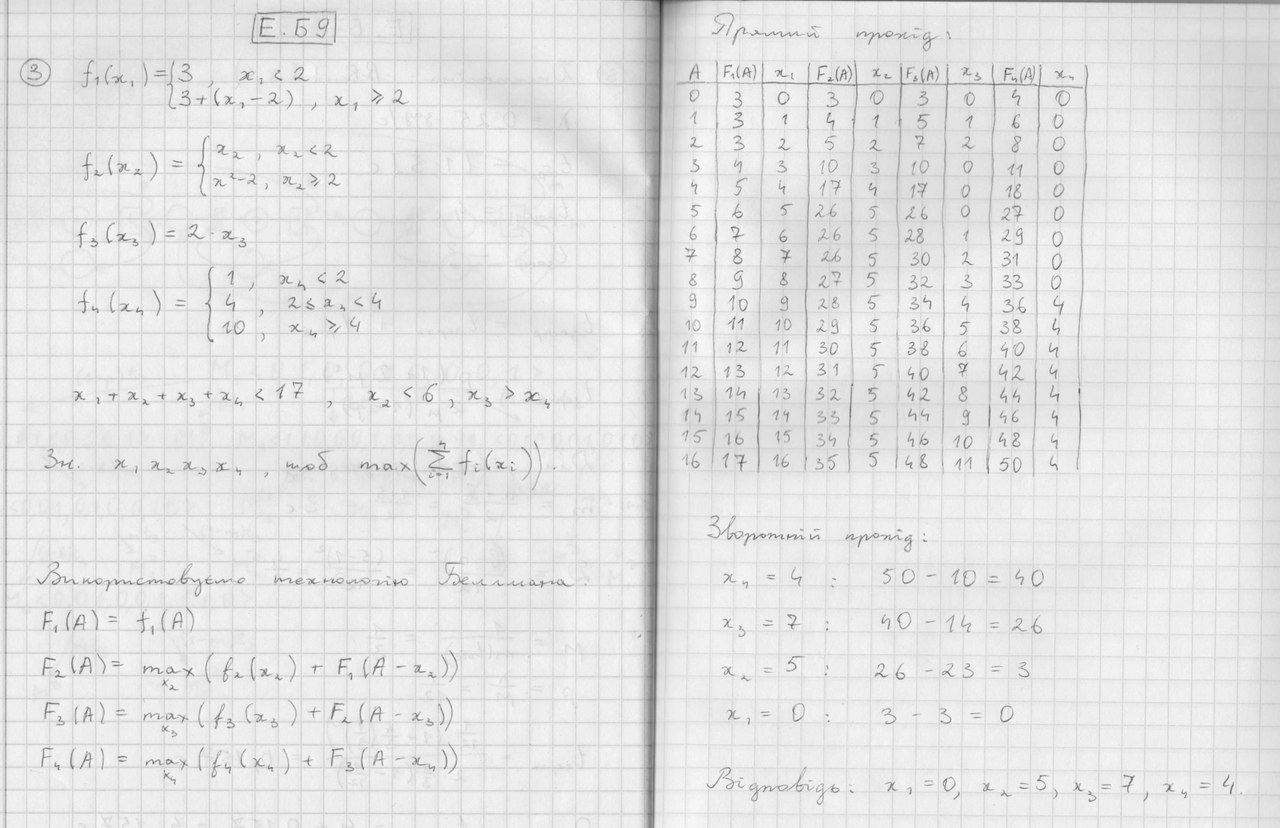 Е.Б9
3 f₁(x₁) = { 3 , x₁ < 2
3+(x₁-2) , x₁ ⩾ 2
f₂(x₂) = { x₂ , x₂ < 2
x²-2 , x₂ ⩾ 2
f₃(x₃) = 2·x₃
f₄(x₄) = { 1 , x₄ < 2
4 , 2 ⩽ x₄ < 4
10 , x₄ ⩾ 4
x₁ + x₂ + x₃ + x₄ < 17 , x₂ < 6 , x₃ > x₄
Зн. x₁ x₂ x₃ x₄ , щоб max(∑ᵢ₌₁⁴ fᵢ(xᵢ)).
Використовуємо технологію Беллмана.
F₁(A) = f₁(A)
F₂(A) = max x₂ (f₂(x₂) + F₁(A-x₂))
F₃(A) = max x₃ (f₃(x₃) + F₂(A-x₃))
F₄(A) = max x₄ (f₄(x₄) + F₃(A-x₄))
Прямий прохід:
A F₁(A) x₁ F₂(A) x₂ F₃(A) x₃ F₄(A) x₄
0 3 0 3 0 3 0 4 0
1 3 1 4 1 5 1 6 0
2 3 2 5 2 7 2 8 0
3 4 3 10 3 10 0 11 0
4 5 4 17 4 17 0 18 0
5 6 5 26 5 26 0 27 0
6 7 6 26 5 28 1 29 0
7 8 7 26 5 30 2 31 0
8 9 8 27 5 32 3 33 0
9 10 9 28 5 34 4 36 4
10 11 10 29 5 36 5 38 4
11 12 11 30 5 38 6 40 4
12 13 12 31 5 40 7 42 4
13 14 13 32 5 42 8 44 4
14 15 14 33 5 44 9 46 4
15 16 15 34 5 46 10 48 4
16 17 16 35 5 48 11 50 4
Зворотній прохід:
x₄ = 4 : 50 - 10 = 40
x₃ = 7 : 40 - 14 = 26
x₂ = 5 : 26 - 23 = 3
x₁ = 0 : 3 - 3 = 0
Відповідь: x₁ = 0, x₂ = 5, x₃ = 7, x₄ = 4.